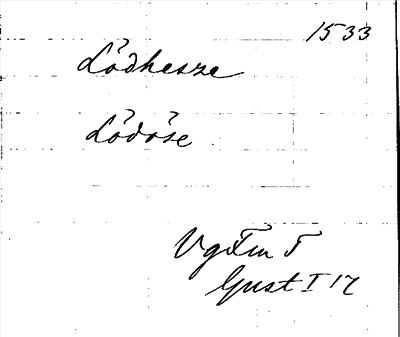 1533
Lödhesze
Lödöse
Gust I 17